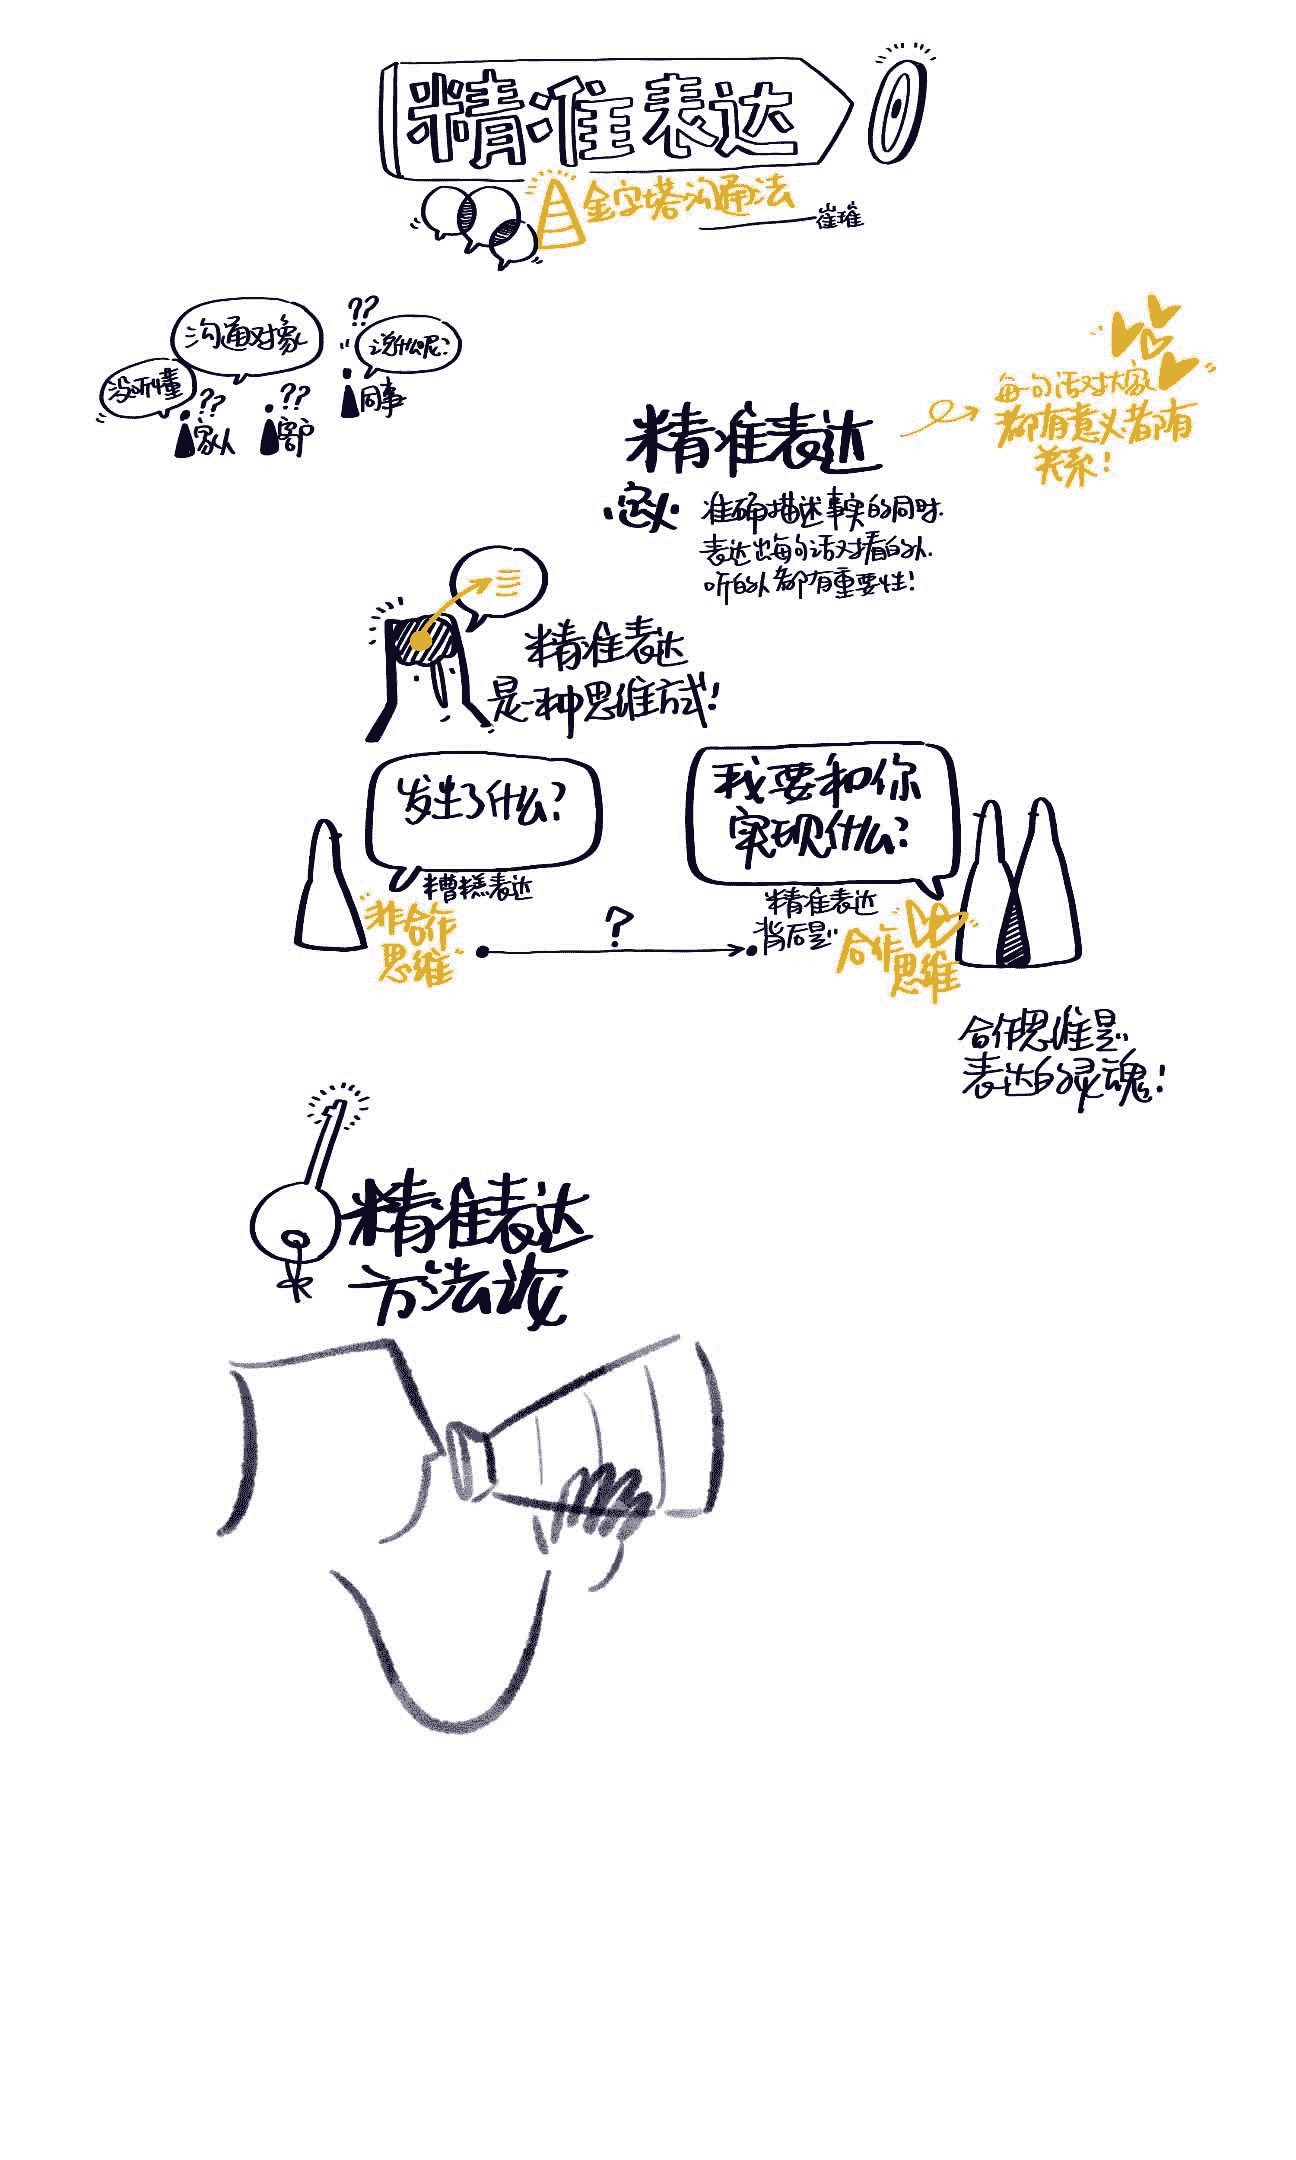 精准表达
金字塔沟通法
崔璀
沟通对象
没听懂
??
家人
??
客户
??
说什么呢?
同事
每一句话对大家
都有意义.都有
关系!
精准表达
·定义·
准确描述事实的同时.
表达出每句话对看的人.
听的人都有重要性!
精准表达
是一种思维方式!
发生了什么?
糟糕表达
非合作
思维
?
我要和你
实现什么?
精准表达
背后是..
合作
思维
合作思维是..
表达的灵魂!
精准表达
方法论